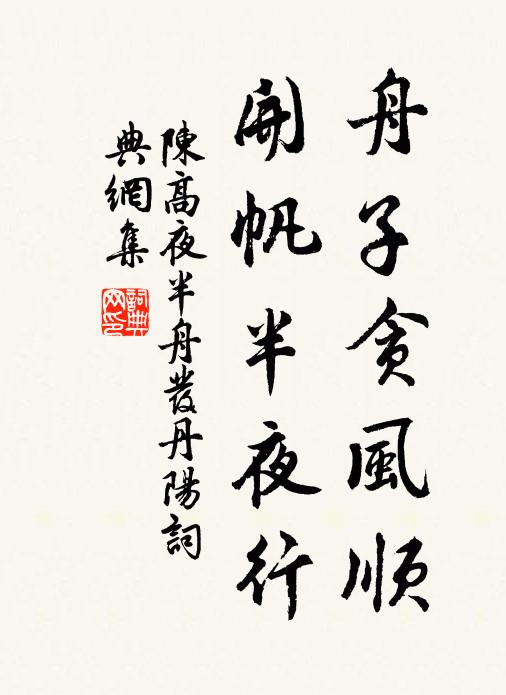 舟子貪風順
開帆半夜行
陳高夜半舟發丹陽詞
典網集
詞典網印